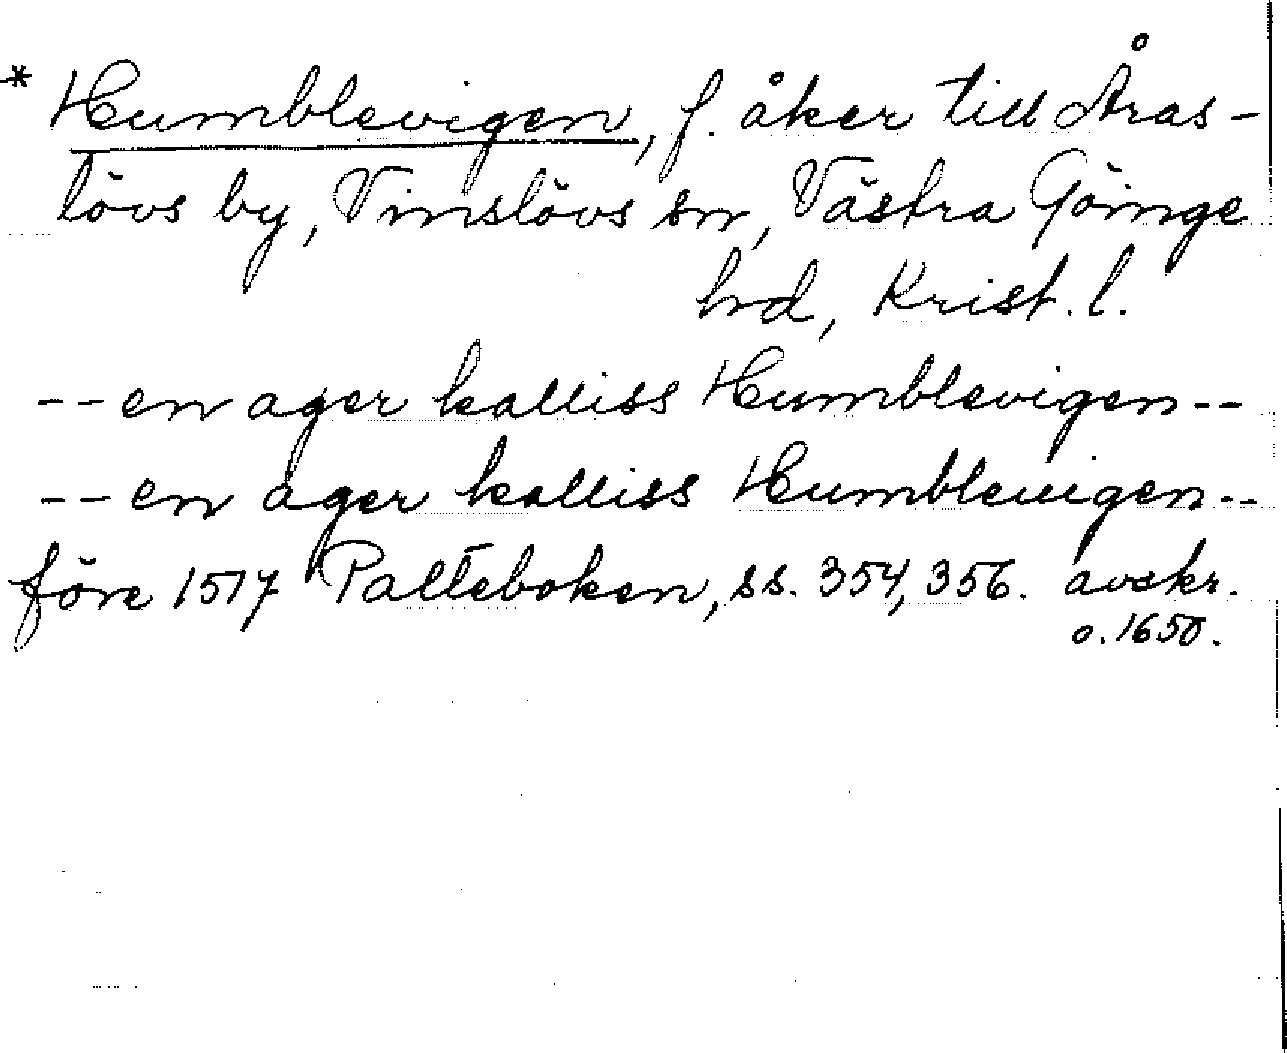 * Humblevigen, f. åker till Åras-
lövs by, Vinslövs sn, Västra Göinge
hrd, Krist. l.
-- en ager kalliss Humblevigen --
-- en ager kalliss Humblevigen --
före 1517 Palteboken, ss. 354, 356. avskr.
o. 1650.